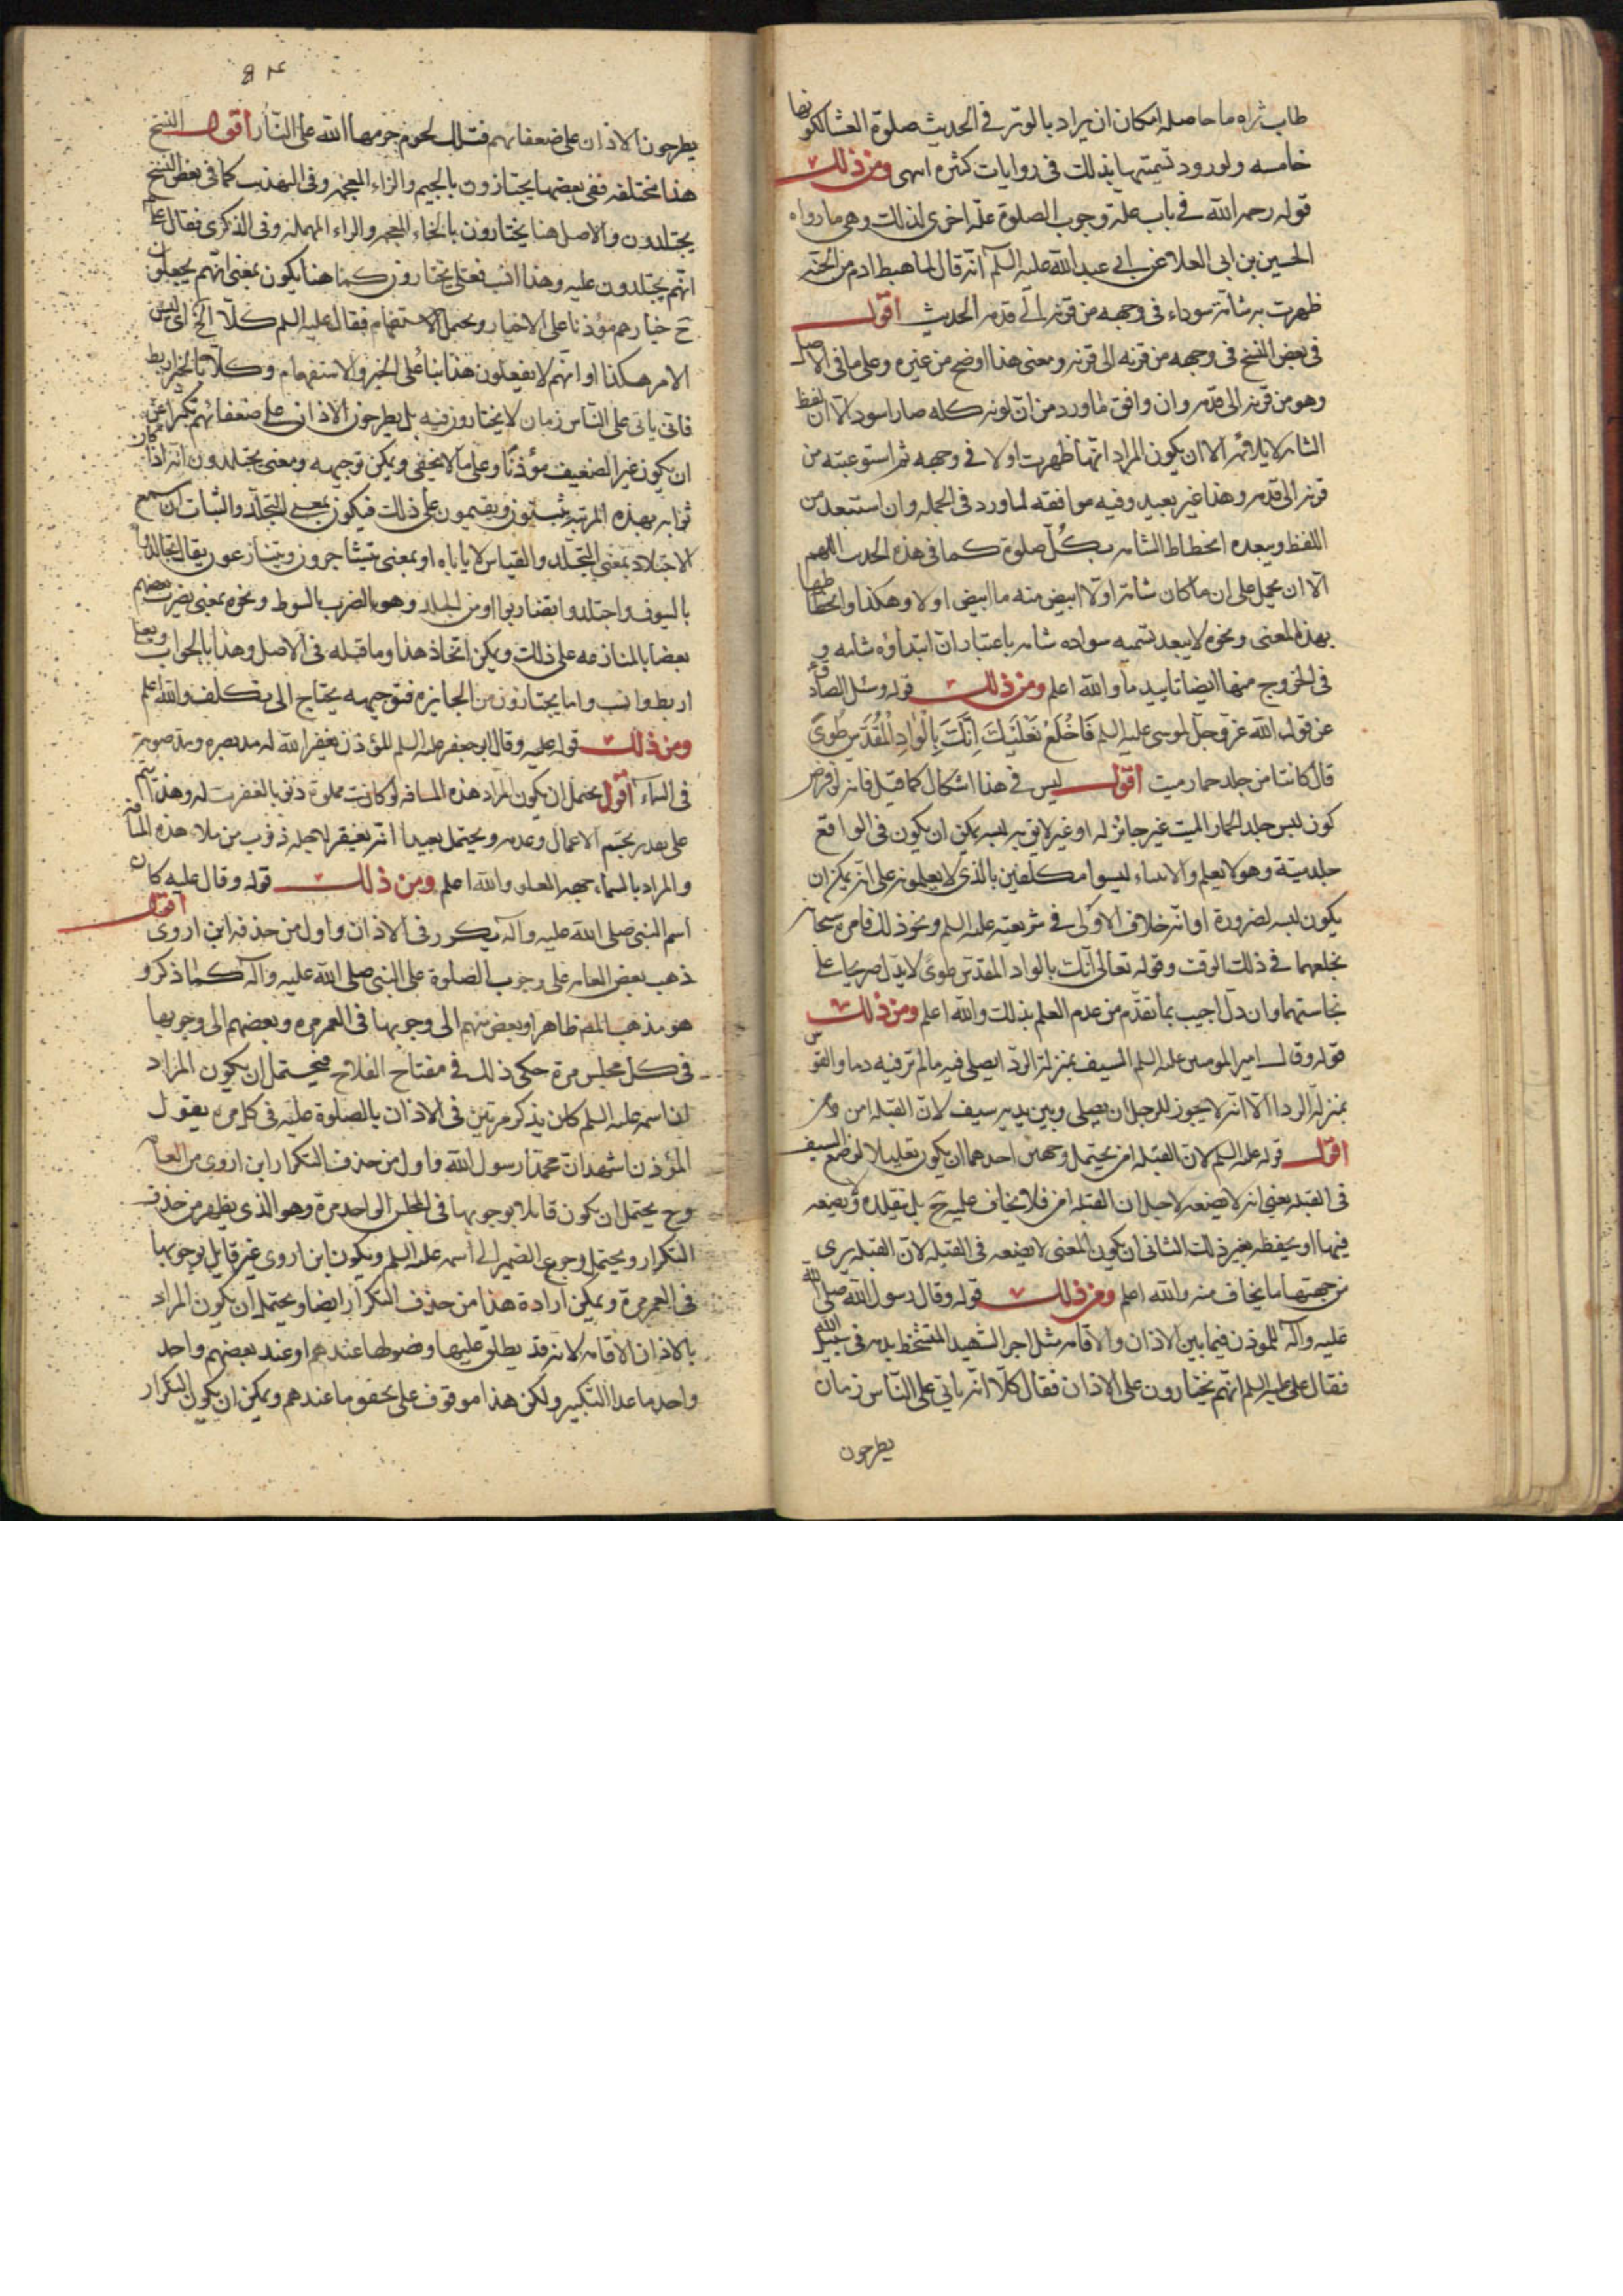 طاب ثراه ما حاصله امكان ان يراد بالوتر في الحديث صلوة العشا لكونها
خامسه ولورود تسميتها بذلك في روايات كثره انتهى ومن ذلك
قوله رحمه الله في باب علة وجوب الصلوة علّة اخرى لذلك وهي ما رواه
الحسين بن ابى العلا عن ابي عبد الله عليه السلم انه قال لما هبط ادم من الجنه
ظهرت به شامة سوداء في وجهه من قرنه الى قدمه الحديث اقول
في بعض النسخ في وجهه من قرنه الى قرنه ومعنى هذا اوضح من غيره وعلى ما في الاصل
وهو من قرنه الى قدمه وان وافق ما ورد من ان لونه كله صار اسود الا ان لفظ
الشامه لا يلائمه الا ان يكون المراد انها ظهرت اولا في وجهه ثم استوعبته من
قرنه الى قدمه وهذا غير بعيد وفيه موافقه لما ورد في الجمله وان استبعد من
اللفظ ويبعده انحطاط الشامه بكل صلوة كما في هذه الحدث اللهم
الا ان يحمل على ان ما كان شامة اولا ابيض منه ما ابيض اولا وهكذا وانحطاطها
بهذا المعنى ونحوه لا يبعد تسميه سواده شامه باعتبار ان ابتداؤه شامه و
في الخروج منها ايضا تاييد ما والله اعلم ومن ذلك قوله وسئل الصادق
عن قول الله عز وجل لموسى عليه السلم فَاخْلَعْ نَعْلَيْكَ اِنَّكَ بِالْوَادِ الْمُقَدَّسِ طُوًى
قال كانتا من جلد حمار ميت اقول ليس في هذا اشكال كما قيل فانه لو فرض
كون لبس جلد الحمار الميت غير جائز له او غير لايق به لبسه يمكن ان يكون في الواقع
جلد ميتة وهو لا يعلم والانبياء ليسوا مكلفين بالذي لا يعلمونه على انه يمكن ان
يكون لبسه لضرورة او انه خلاف الاولى في شريعته عليه السلم ونحو ذلك فامره سبحانه
بخلعهما في ذلك الوقت وقوله تعالى انك بالواد المقدس طوى لا يدل صريحا على
نجاستهما وان دل اجيب بما تقدم من عدم العلم بذلك والله اعلم ومن ذلك
قوله وقال امير المومنين عليه السلم السيف بمنزلة الردا يصلى فيه ما لم تر فيه دما والقوس
بمنزلة الردا الا انه لا يجوز للرجل ان يصلى وبين يديه سيف لان القبله امن
اقول قوله عليه السلم لان القبله امن يحتمل وجهين احدهما ان يكون تعليلا لوضع السيف
في القبله يعني انه لا يضعه لاجل ان القبله امن فلا يخاف عليه ح بل تقلده او يضعه
فيها او يحفظه بغير ذلك الثانى ان يكون المعنى لا يضعه في القبله لان القبله يرى
من جهتها ما يخاف منه والله اعلم ومن ذلك قوله وقال رسول الله صلى الله
عليه واله للموذن فيما بين الاذان والاقامه مثل اجر الشهيد المتشحط بدمه في سبيل الله
فقال علي عليه السلم انهم يختارون على الاذان فقال كلا انه ياتى على الناس زمان
يطرحون
٨٤
يطرحون الاذان على ضعفائهم فتلك لحوم حرمها الله على النار اقول النسخ
هذا مختلفه ففي بعضها يجتازون بالجيم والزاء المعجمه وفي التهذيب كما في بعض النسخ
يجتلدون والاصل هنا يختارون بالخاء المعجمه والراء المهمله وفي الذكرى فقال على
انهم يجتلدون عليه وهذا انسب فعلى يختارون كما هنا يكون بمعنى انهم يجعلون
ح خيارهم مؤذنا على الاخبار ويحتمل الاستفهام فقال عليه السلم كلا الخ اى ليس
الامر هكذا او انهم لا يفعلون هذا بناء على الخبر والاستفهام وكلا بالخبر اربط
فانى ياتى على الناس زمان لا يختارون فيه بل يطرحون الاذان على ضعفائهم تكبرا عن
ان يكون غير الضعيف مؤذنا وعلى ما لا يخفى ويمكن توجيهه ومعنى يجتلدون انه اذا كان
ثوابه بهذه المرتبه يثبتون ويقيمون على ذلك فيكون بمعنى التجلد والثبات ان سمع
الاجتلاد بمعنى التجلد والقياس لا ياباه او بمعنى يتشاجرون ويتنازعون يقال تجالدوا
بالسيوف واجتلدوا تضاربوا او من الجلد وهو الضرب بالسوط ونحوه بمعنى يضرب بعضهم
بعضا بالمنازعه على ذلك ويمكن اتحاذ هذا وما قبله في الاصل وهذا بالجواب وبما
اربط وانسب واما يجتازون من الجايزه فتوجيهه يحتاج الى تكلف والله اعلم
ومن ذلك قوله عليه وقال ابو جعفر عليه السلم المؤذن يغفر الله له مد بصره ومد صوته
في السماء اقول يحتمل ان يكون المراد هذه المسافه لو كانت مملوة ذنوبا لغفرت له وهذا يتم
على تقدير تجسم الاعمال وعدمه ويحتمل بعيدا انه يغفر لاجله ذنوب من ملاء هذه المسافه
والمراد بالسماء جهة العلو والله اعلم ومن ذلك قوله وقال عليه كان
اسم النبى صلى الله عليه وآله يكرر في الاذان واول من حذفه ابن اروى اقول
ذهب بعض العامه على وجوب الصلوة على النبى صلى الله عليه وآله كما ذكر و
هو مذهب المص ظاهرا وبعض منهم الى وجوبها في العمر مره وبعضهم الى وجوبها
في كل مجلس مرة حكى ذلك في مفتاح الفلاح فيحتمل ان يكون المراد
ان اسمه عليه السلم كان يذكر مرتين في الاذان بالصلوة عليه في كل مره يقول
المؤذن اشهد ان محمدا رسول الله واول من حذف التكرار ابن اروى من العامه
وح يحتمل ان يكون قائلا بوجوبها في المجلس الواحد مرة وهو الذى يظهر من حذف
التكرار ويحتمل رجوع الضمير الى اسمه عليه السلم ويكون ابن اروى غير قايل بوجوبها
في العمر مرة ويمكن ارادة هذا من حذف التكرار ايضا ويحتمل ان يكون المراد
بالاذان الاقامه لانه قد يطلق عليها وفصولها عندهم او عند بعضهم واحد
واحد ما عدا التكبير ولكن هذا موقوف على تحقق ما عندهم ويمكن ان يكون التكرار